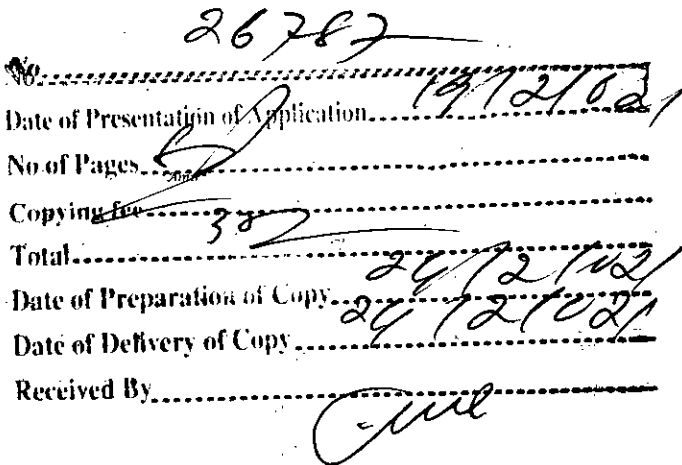 26787
No.
Date of Presentation of Application 19/2/021
No of Pages
Copying fee
Total 30/
Date of Preparation of Copy 24/2/021
Date of Delivery of Copy 24/2/021
Received By